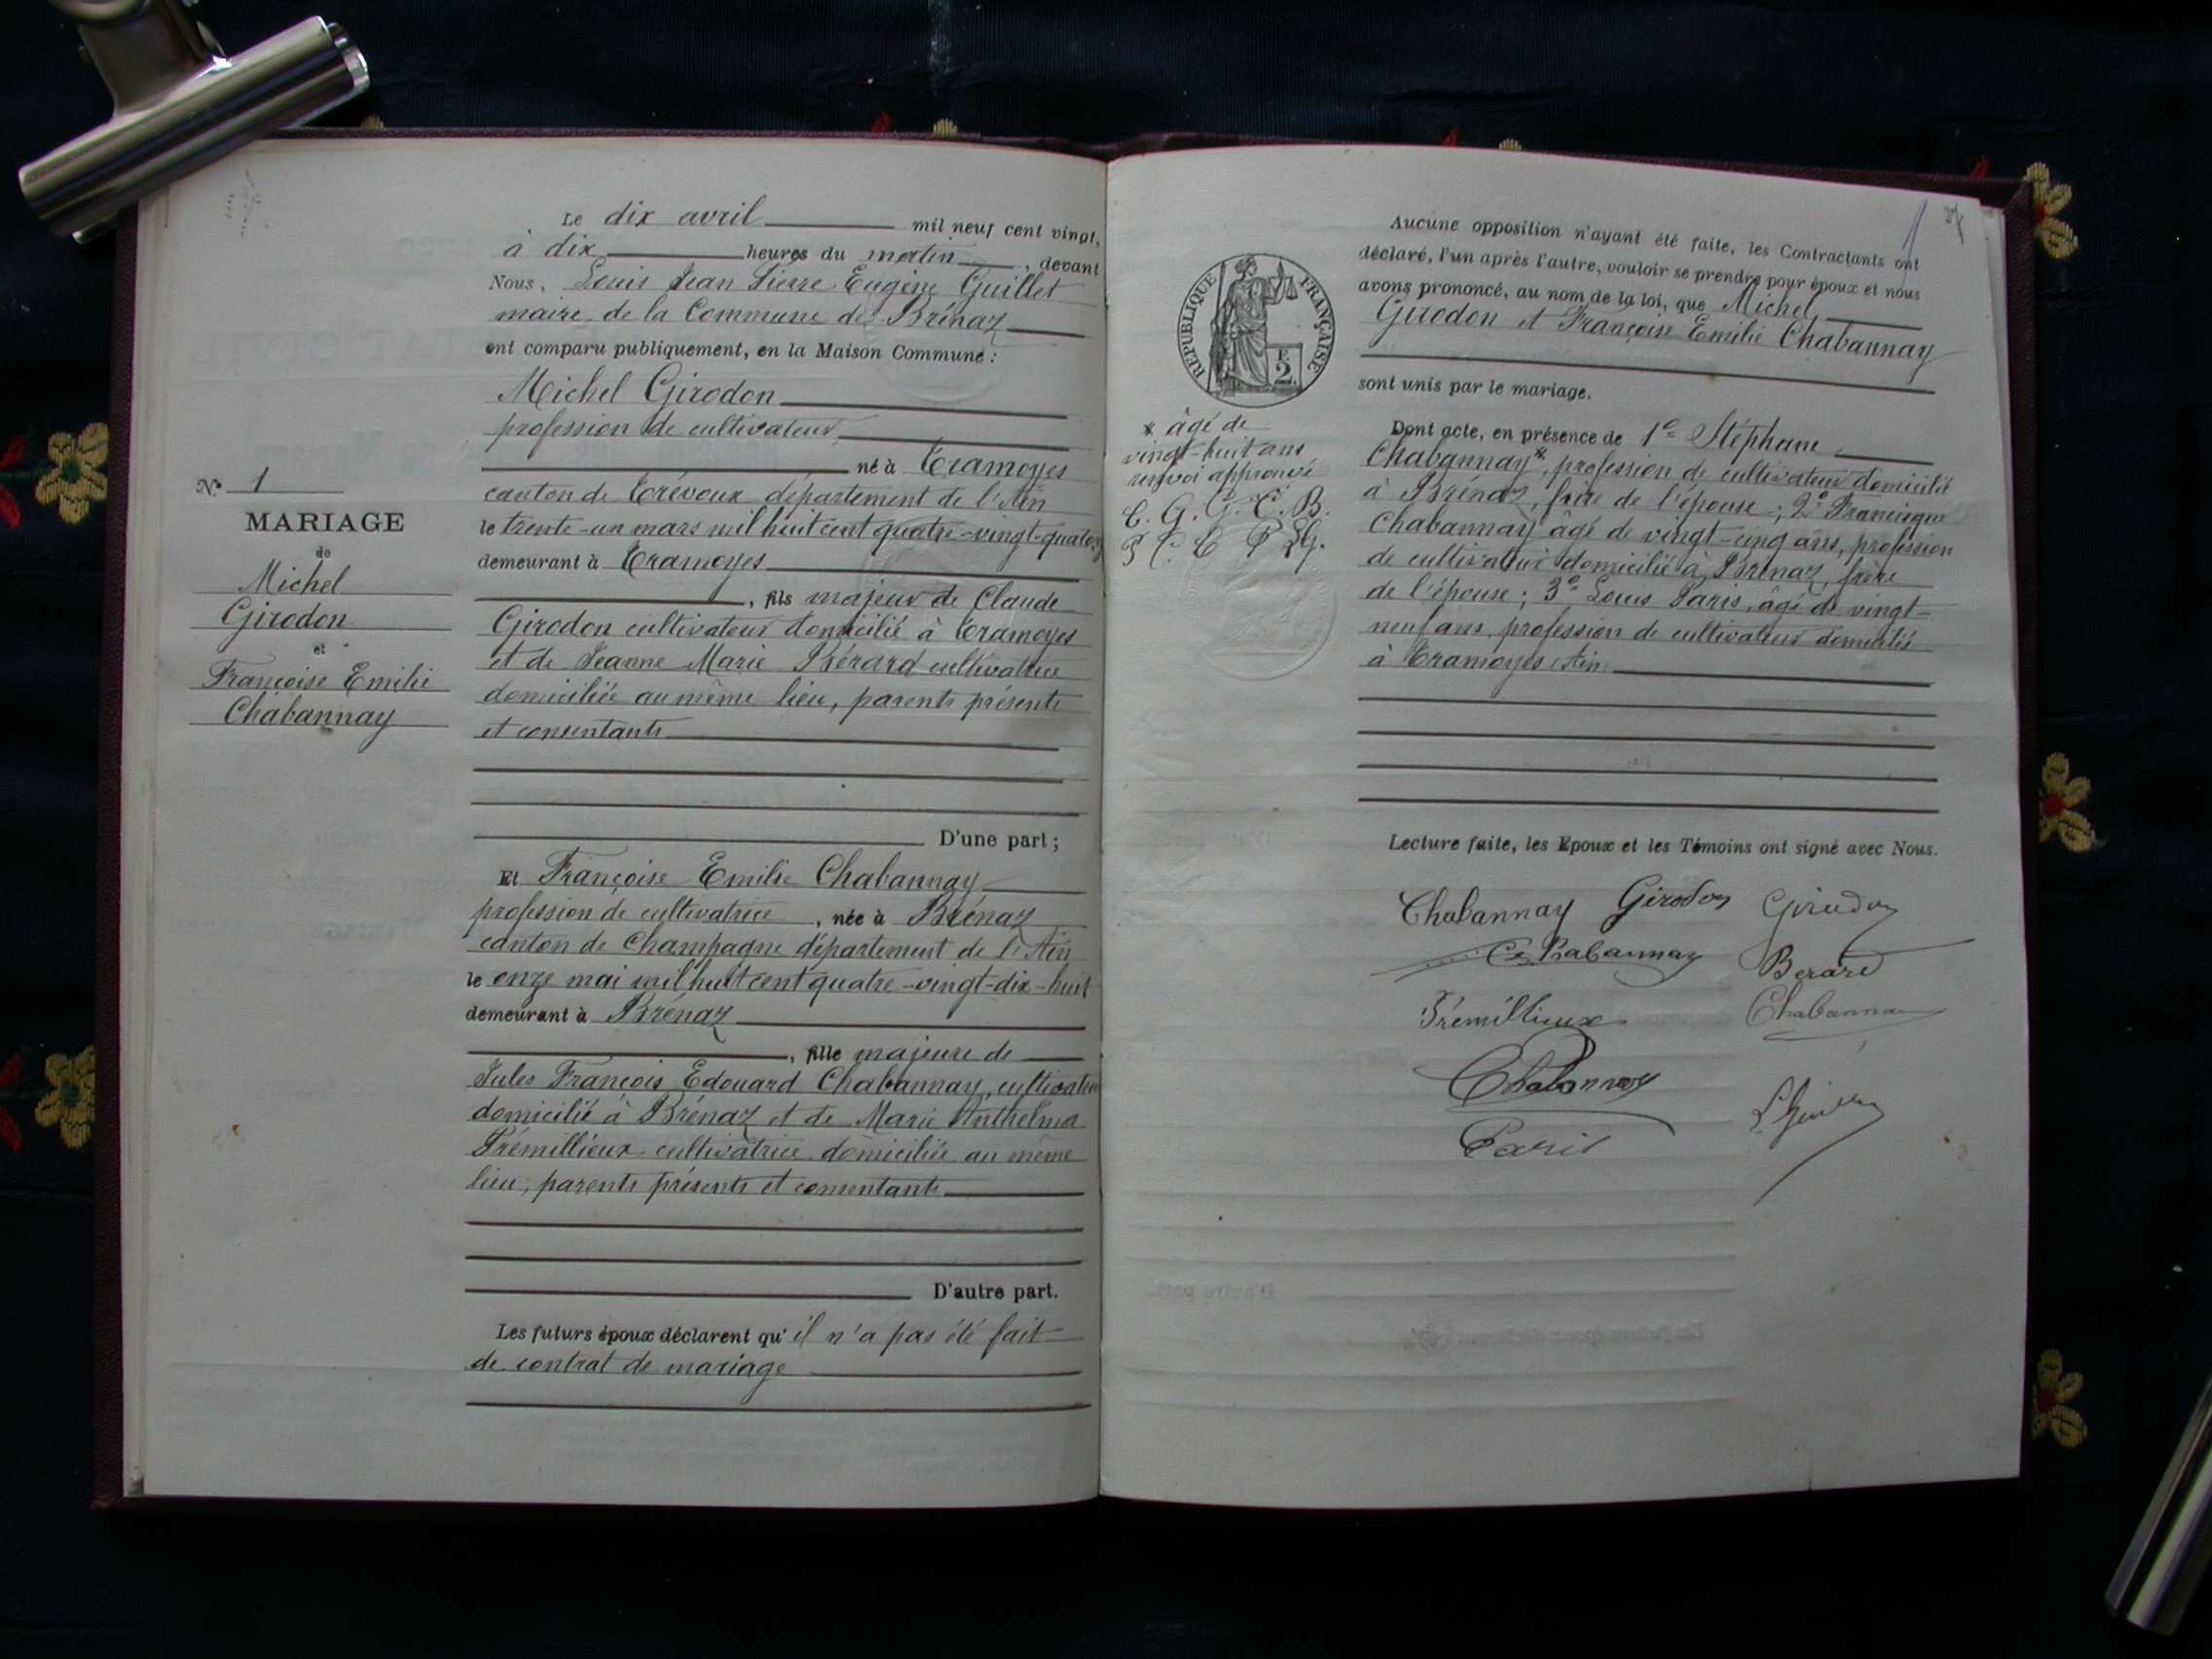 N° 1
MARIAGE
de
Michel
Girodon
et
Françoise Emilie
Chabannay
Le dix avril mil neuf cent vingt,
à dix heures du matin, devant
Nous, Louis Jean Pierre Eugène Guillet
maire de la Commune de Brénaz
ont comparu publiquement, en la Maison Commune :
Michel Girodon
profession de cultivateur
né à Tramoyes
canton de Trévoux département de l'Ain
le trente-un mars mil huit cent quatre-vingt-quatorze
demeurant à Tramoyes
, fils majeur de Claude
Girodon cultivateur domicilié à Tramoyes
et de Jeanne Marie Bérard cultivatrice
domiciliée au même lieu, parents présents
et consentants
D'une part ;
Et Françoise Emilie Chabannay
profession de cultivatrice, née à Brénaz
canton de Champagne département de l'Ain
le onze mai mil huit cent quatre-vingt-dix-huit
demeurant à Brénaz
, fille majeure de
Jules François Edouard Chabannay, cultivateur
domicilié à Brénaz et de Marie Anthelma
Prémillieux cultivatrice domiciliée au même
lieu, parents présents et consentants
D'autre part.
Les futurs époux déclarent qu'il n'a pas été fait
de contrat de mariage
27
REPUBLIQUE FRANÇAISE
F.
2
* âgé de
vingt-huit ans
renvoi approuvé
C. G. G. C. B.
P C C P LG.
Aucune opposition n'ayant été faite, les Contractants ont
déclaré, l'un après l'autre, vouloir se prendre pour époux et nous
avons prononcé, au nom de la loi, que Michel
Girodon et Françoise Emilie Chabannay
sont unis par le mariage.
Dont acte, en présence de 1° Stéphane
Chabannay*, profession de cultivateur domicilié
à Brénaz, frère de l'épouse ; 2° Francisque
Chabannay âgé de vingt-cinq ans, profession
de cultivateur domicilié à Brénaz, frère
de l'épouse ; 3° Louis Paris, âgé de vingt-
neuf ans, profession de cultivateur domicilié
à Tramoyes (Ain)
Lecture faite, les Epoux et les Témoins ont signé avec Nous.
Chabannay Girodon Girodon
Chabannay Berard
Prémillieux Chabannay
Chabannay
Paris L. Guillet